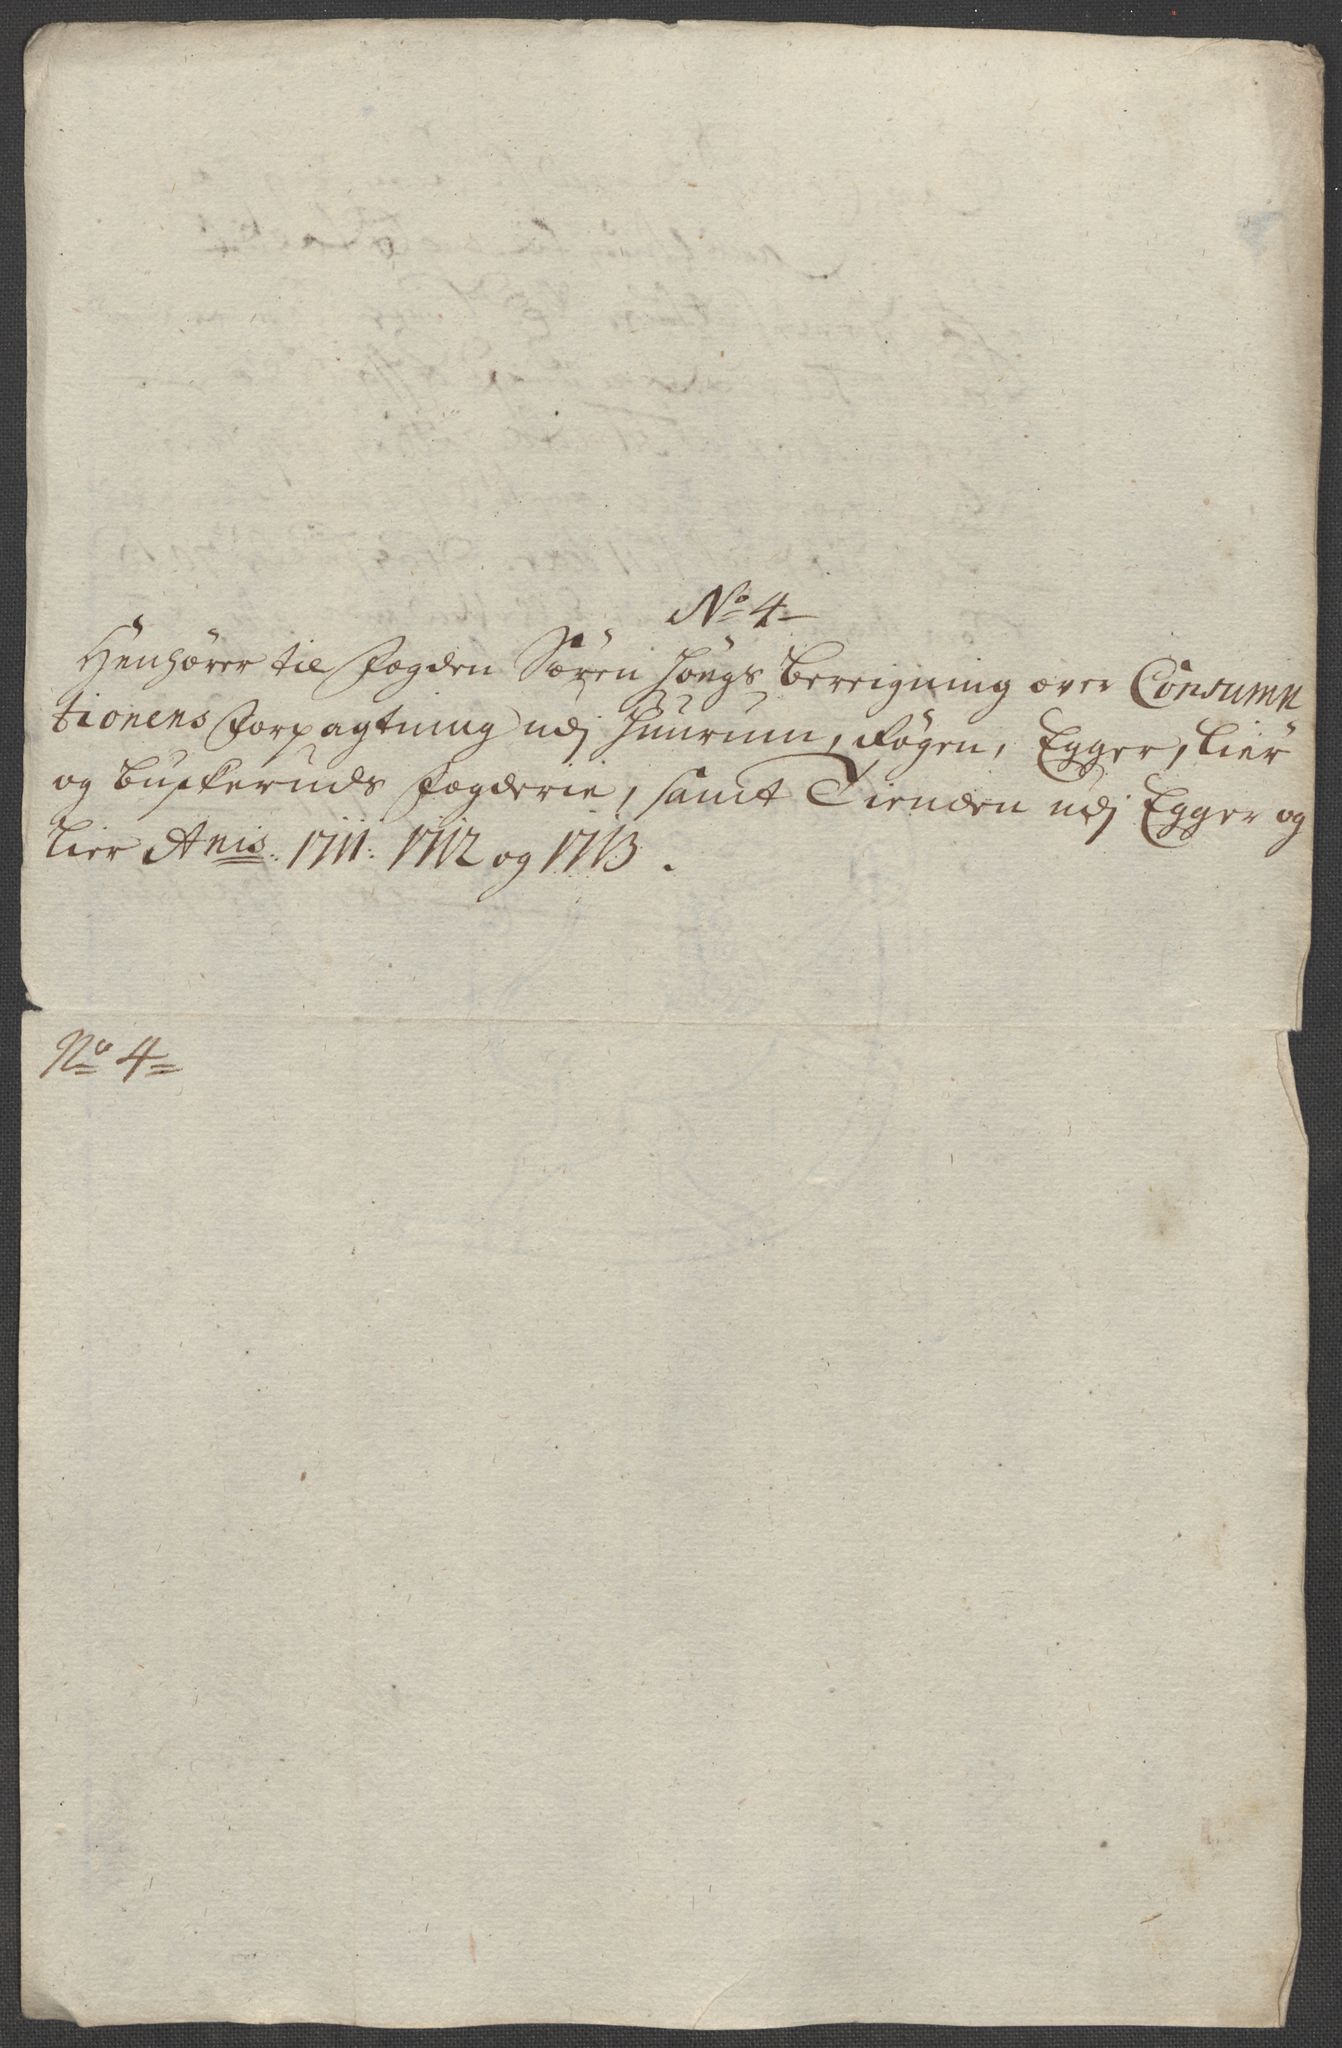 No 4
Henhører til Fogden Søren Høegs bereigning over Consumn
tionens Forpagtning udj Huurum, Røgen, Egger, Lier
og buskeruds Fogderie, samt Tienden udj Egger og
Lier Anis. 1711: 1712 og 1713.
No 4